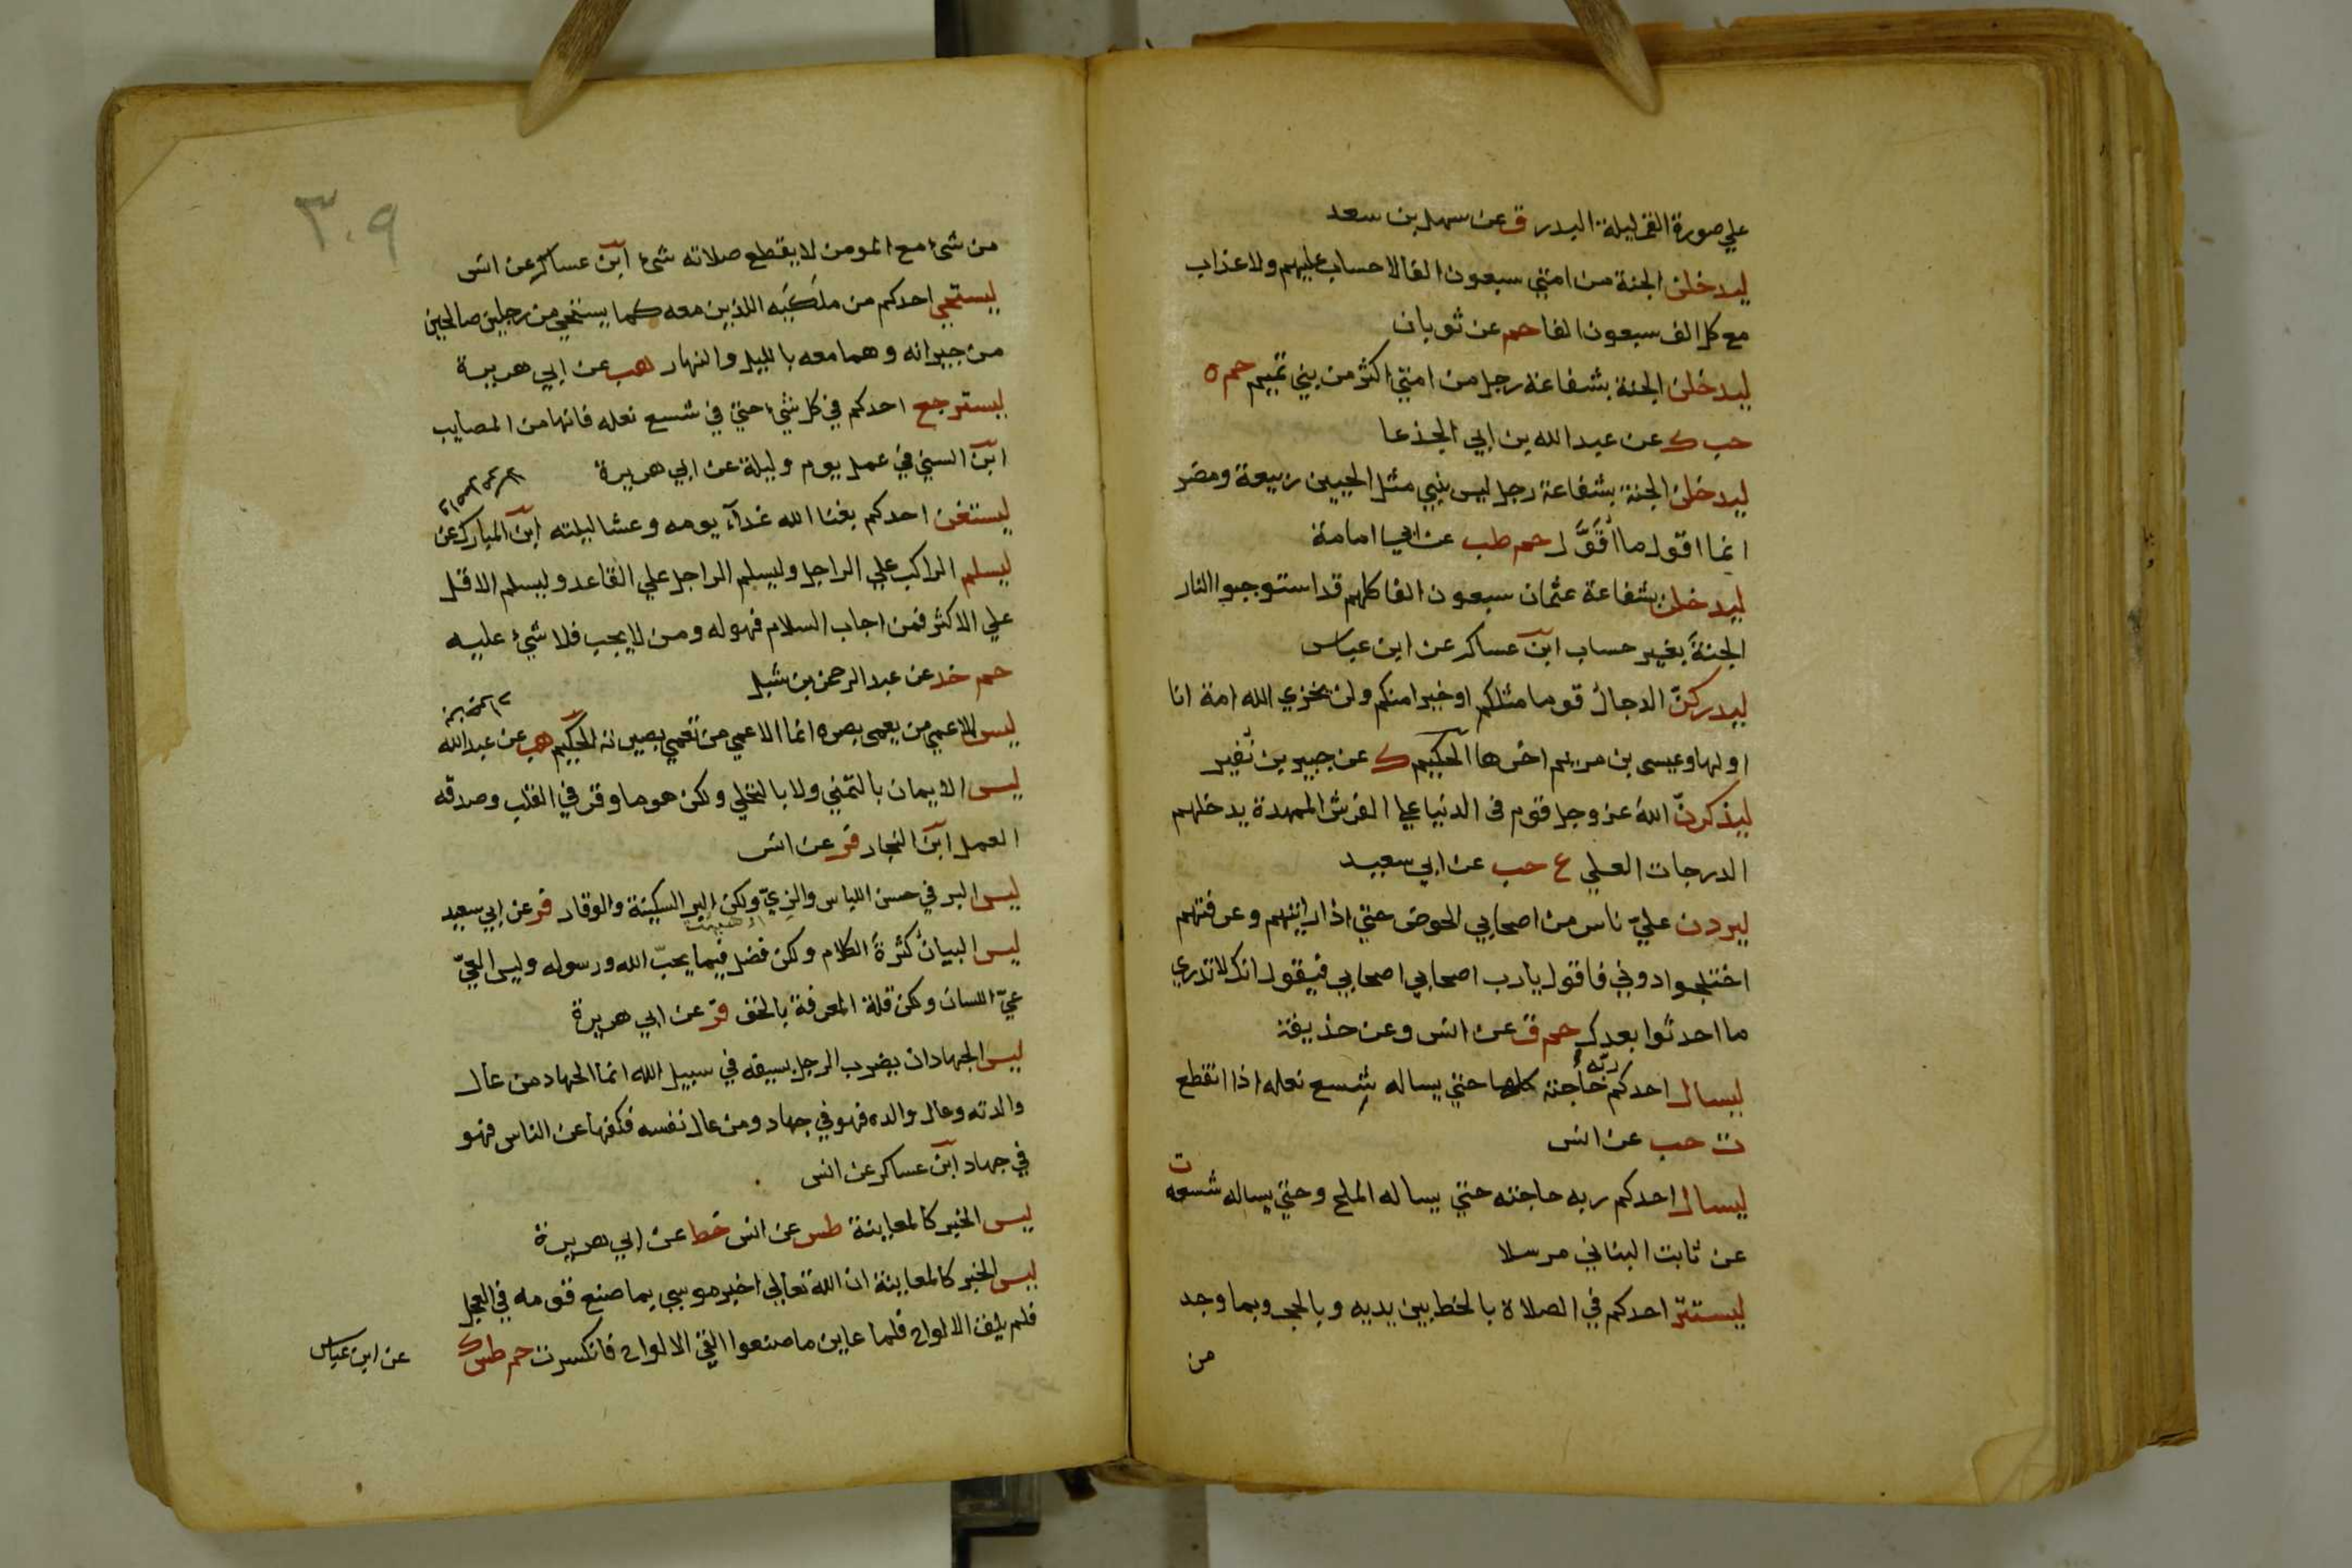 علي صورة القمر ليلة البدر ق عن سهل بن سعد
ليدخلن الجنة من امتي سبعون الفا لا حساب عليهم ولا عذاب
مع كل الف سبعون الفا حم عن ثوبان
ليدخلن الجنة بشفاعة رجل من امتي اكثر من بني تميم حم ه
حب ك عن عبد الله بن ابي الجذعا
ليدخلن الجنة بشفاعة رجل ليس بنبي مثل الحيين ربيعة ومضر
انما اقول ما أُقَوَّل حم طب عن ابي امامة
ليدخلن بشفاعة عثمان سبعون الفا كلهم قد استوجبوا النار
الجنةَ بغير حساب ابن عساكر عن ابن عباس
ليدركنّ الدجال قوما مثلكم او خيرا منكم ولن يخزي الله امة انا
اولها وعيسى بن مريم اخرها الحكيم ك عن جبير بن نُفير
ليذكرنّ اللهَ عز وجل قوم في الدنيا علي الفرش الممهدة يدخلهم
الدرجات العلي ع حب عن ابي سعيد
ليردن عليّ ناس من اصحابي الحوض حتي اذا رايتهم وعرفتهم
اختلجوا دوني فاقول يا رب اصحابي اصحابي فيقول انك لا تدري
ما احدثوا بعدك حم ق عن انس وعن حذيفة
ليسال احدكم ربّه حاجته كلها حتي يساله شِسع نعله اذا انقطع
ت حب عن انس
ليسال احدكم ربه حاجته حتي يساله الملح وحتي يساله شسعه ت
عن ثابت البناني مرسلا
ليستتر احدكم في الصلاة بالخط بين يديه وبالحجر وبما وجد
من
٣٠٩
من شيء مع المومن لا يقطع صلاته شيء ابن عساكر عن انس
ليستحي احدكم من ملَكَيه اللذين معه كما يستحي من رجلين صالحين
من جيرانه وهما معه بالليل والنهار هب عن ابي هريرة
ليسترجع احدكم في كل شيء حتي في شسع نعله فانها من المصايب
ابن السني في عمل يوم وليلة عن ابي هريرة
ليستغن احدكم بغنا الله غدآء يومه وعشا ليلته ابن المبارك عن
ليسلم الراكب علي الراجل وليسلم الراجل علي القاعد وليسلم الاقل
علي الاكثر فمن اجاب السلام فهو له ومن لا يجب فلا شيء عليه
حم خد عن عبد الرحمن بن شبل
ليس الاعمي من يعمى بصره انما الاعمي من تعمي بصيرته الحكيم هب عن عبد الله
ليس الايمان بالتمني ولا بالتحلي ولكن هو ما وقر في القلب وصدقه
العمل ابن النجار فر عن انس
ليس البر في حسن اللباس والزيّ ولكن البر السكينة والوقار فر عن ابي سعيد
ليس البيانُ كثرةَ الكلام ولكن فضل فيما يحبّ الله ورسوله وليس العيّ
عيّ اللسان ولكن قلة المعرفة بالحق فر عن ابي هريرة
ليس الجهاد ان يضرب الرجل بسيفه في سبيل الله انما الجهاد من عال
والدته وعال والده فهو في جهاد ومن عال نفسه فكفها عن الناس فهو
في جهاد ابن عساكر عن انس
ليس الخبر كالمعاينة طس عن انس خط عن ابي هريرة
ليس الخبر كالمعاينة ان الله تعالي اخبر موسي بما صنع قومه في العجل
فلم يلق الالواح فلما عاين ما صنعوا القي الالواح فانكسرت حم طس ك
عن ابن عباس